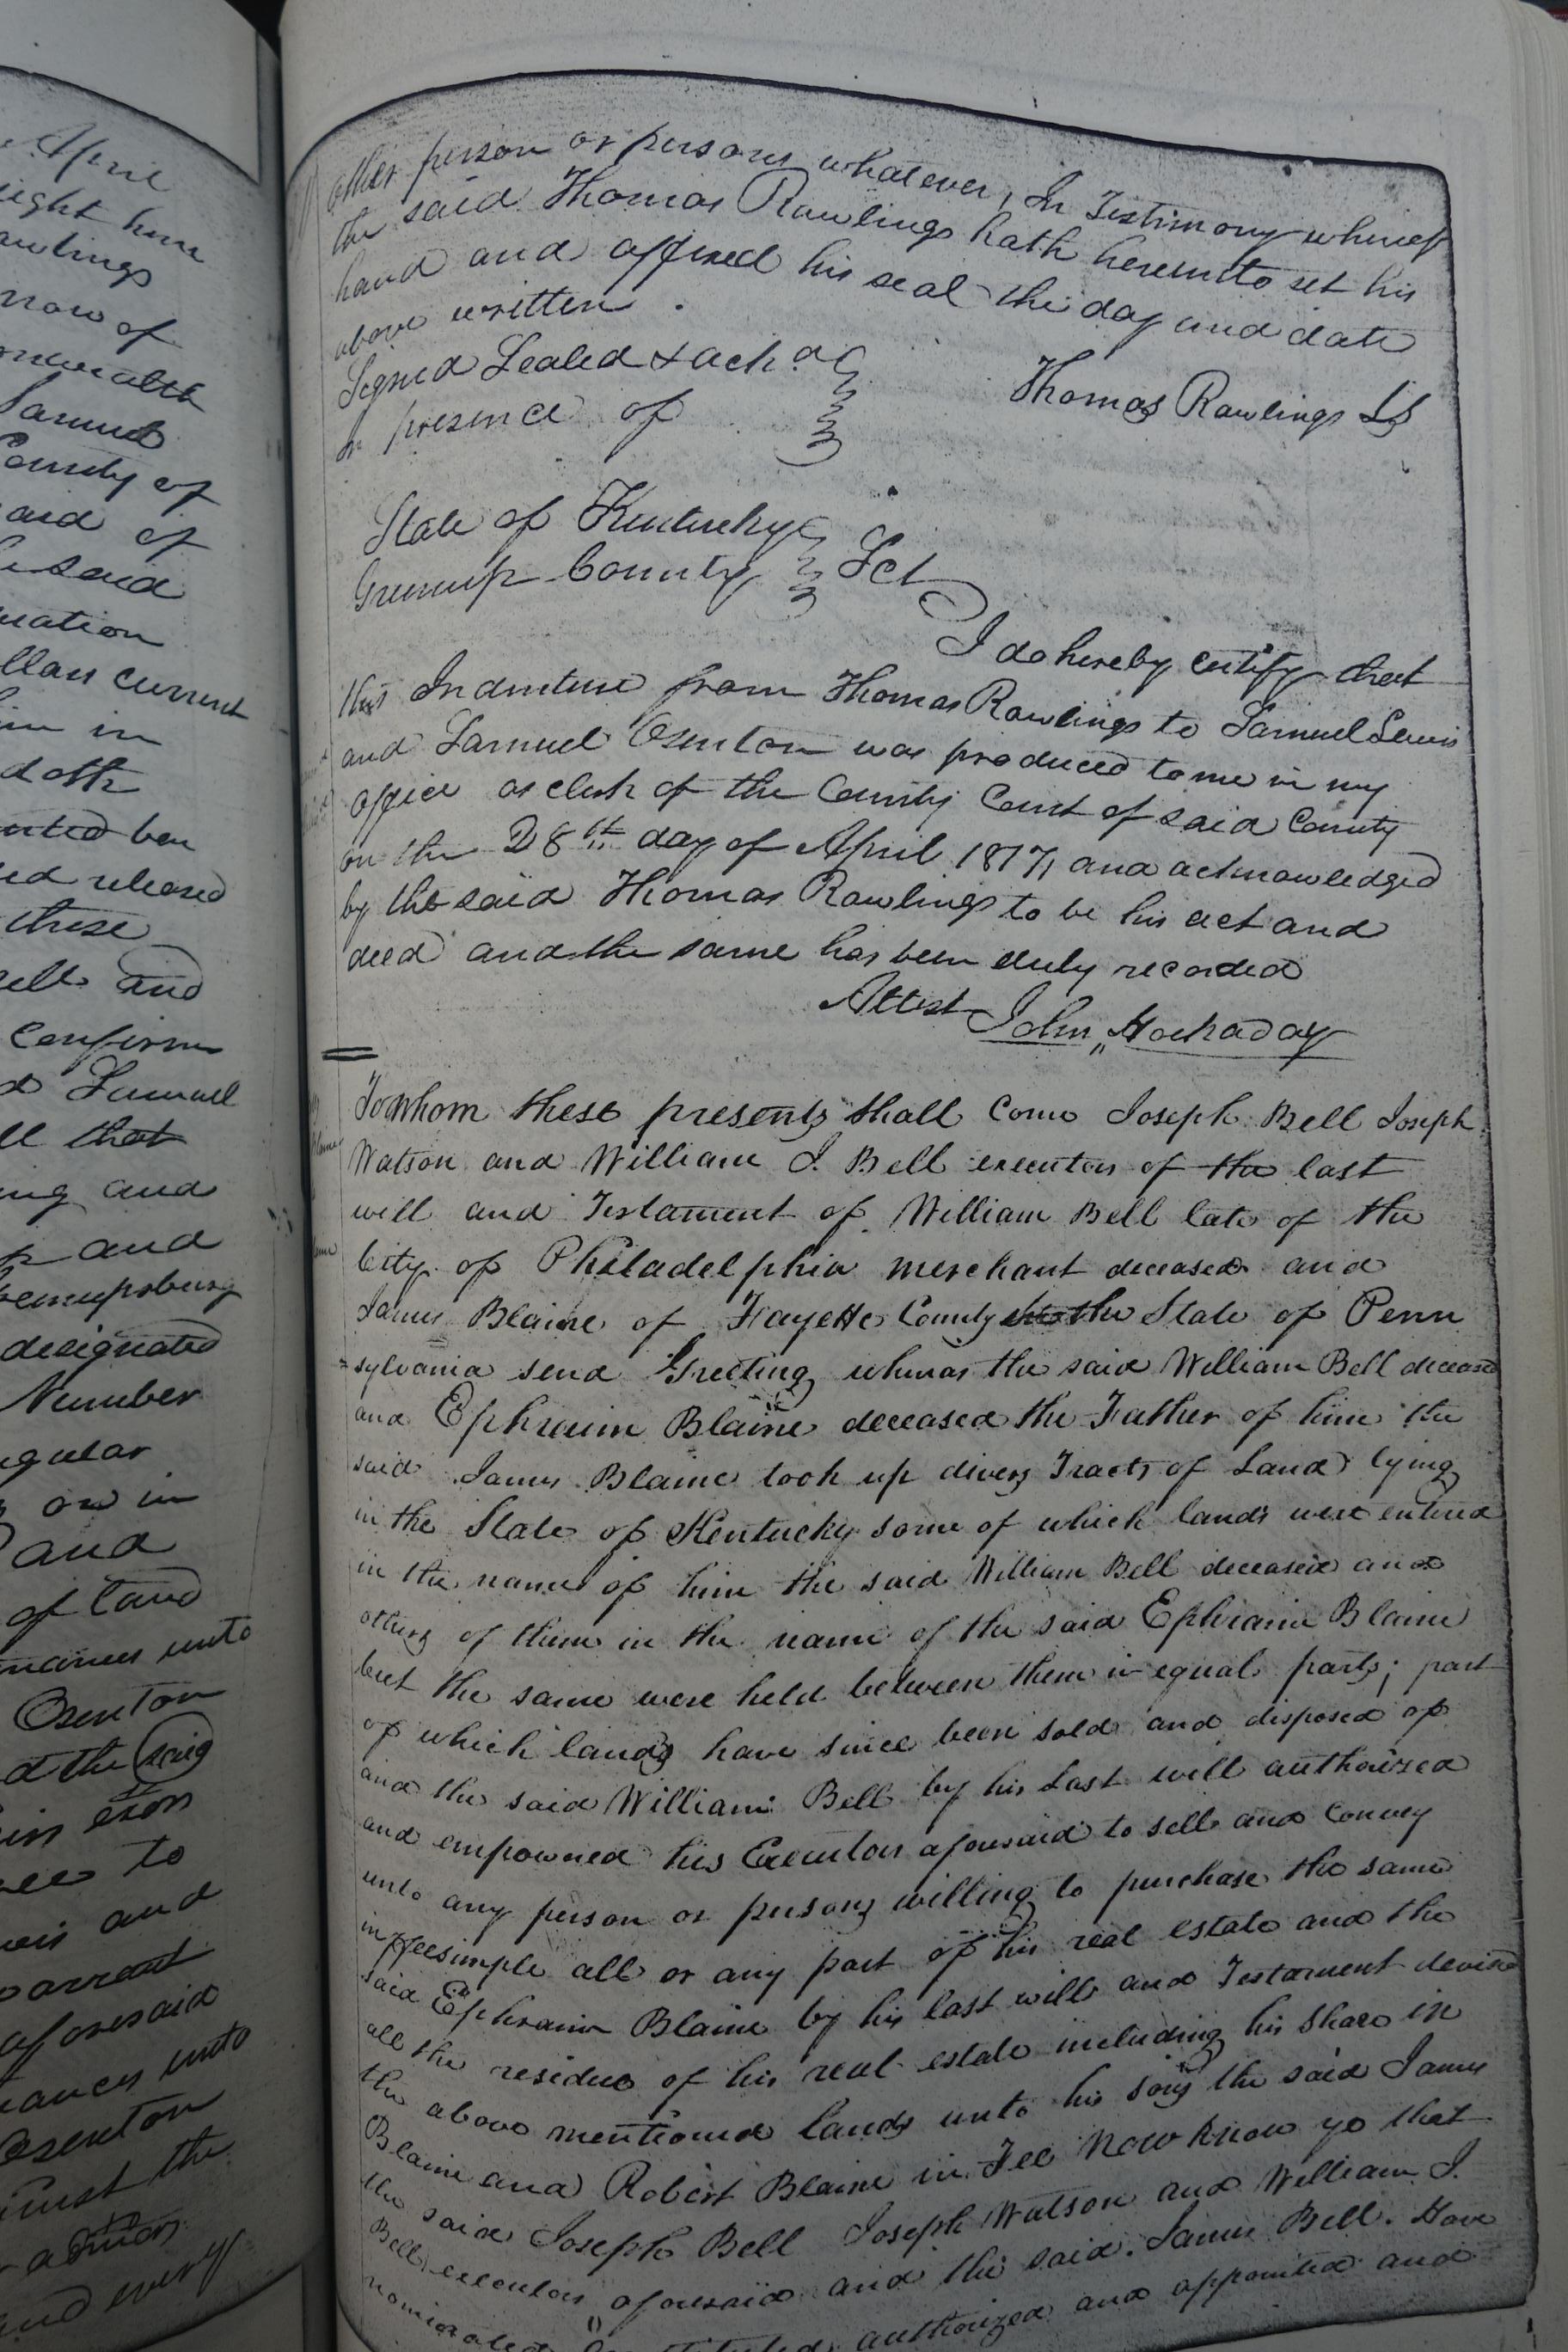 April
ight hun
awlings
now of
monwealth
Samuel
County of
aid of
said
uation
llars current
him in
doth
anted bar
ed released
these
sell and
Confirm
d Samuel
ll that
ing and
p and
Greenupsburg
designated
Number
gular
or in
and
of land
nances unto
Osenton
d the said
in eson
ee to
wis and
warrant
aforesaid
ances unto
Osenton
inst the
and every
other person or persons whatever, In Testimony whereof
the said Thomas Rawlings hath hereunto set his
hand and affixed his seal the day and date
above written.
Signed Sealed & ack d
in presence of
Thomas Rawlings LS
State of Kentucky
Greenup County Sct
I do hereby certify that
this Indenture from Thomas Rawlings to Samuel Lewis
and Samuel Osenton was produced to me in my
office as clerk of the County Court of said County
on the 28th day of April 1817, and acknowledged
by the said Thomas Rawlings to be his act and
deed and the same has been duly recorded
Attest John Hockaday
To Whom these presents shall Come Joseph Bell Joseph
Watson and William J. Bell executors of the last
will and Testament of William Bell late of the
City of Philadelphia merchant deceased and
James Blaine of Fayette County the State of Penn
sylvania send Greeting whereas the said William Bell deceased
and Ephraim Blaine deceased the Father of him the
said James Blaine took up divers Tracts of Land lying
in the State of Kentucky some of which lands were entered
in the name of him the said William Bell deceased and
others of them in the name of the said Ephraim Blaine
but the same were held between them in equal parts; part
of which lands have since been sold and disposed of
and the said William Bell by his last will authorized
and empowered his Executors aforesaid to sell and Convey
unto any person or persons willing to purchase the same
in feesimple all or any part of his real estate and the
said Ephraim Blaine by his last will and Testament devised
all the residue of his real estate including his share in
the above mentioned lands unto his sons the said James
Blaine and Robert Blaine in Fee Now Know ye that
the said Joseph Bell Joseph Watson and William J.
Bell executors aforesaid and the said James Bell. Have
authorized and appointed and